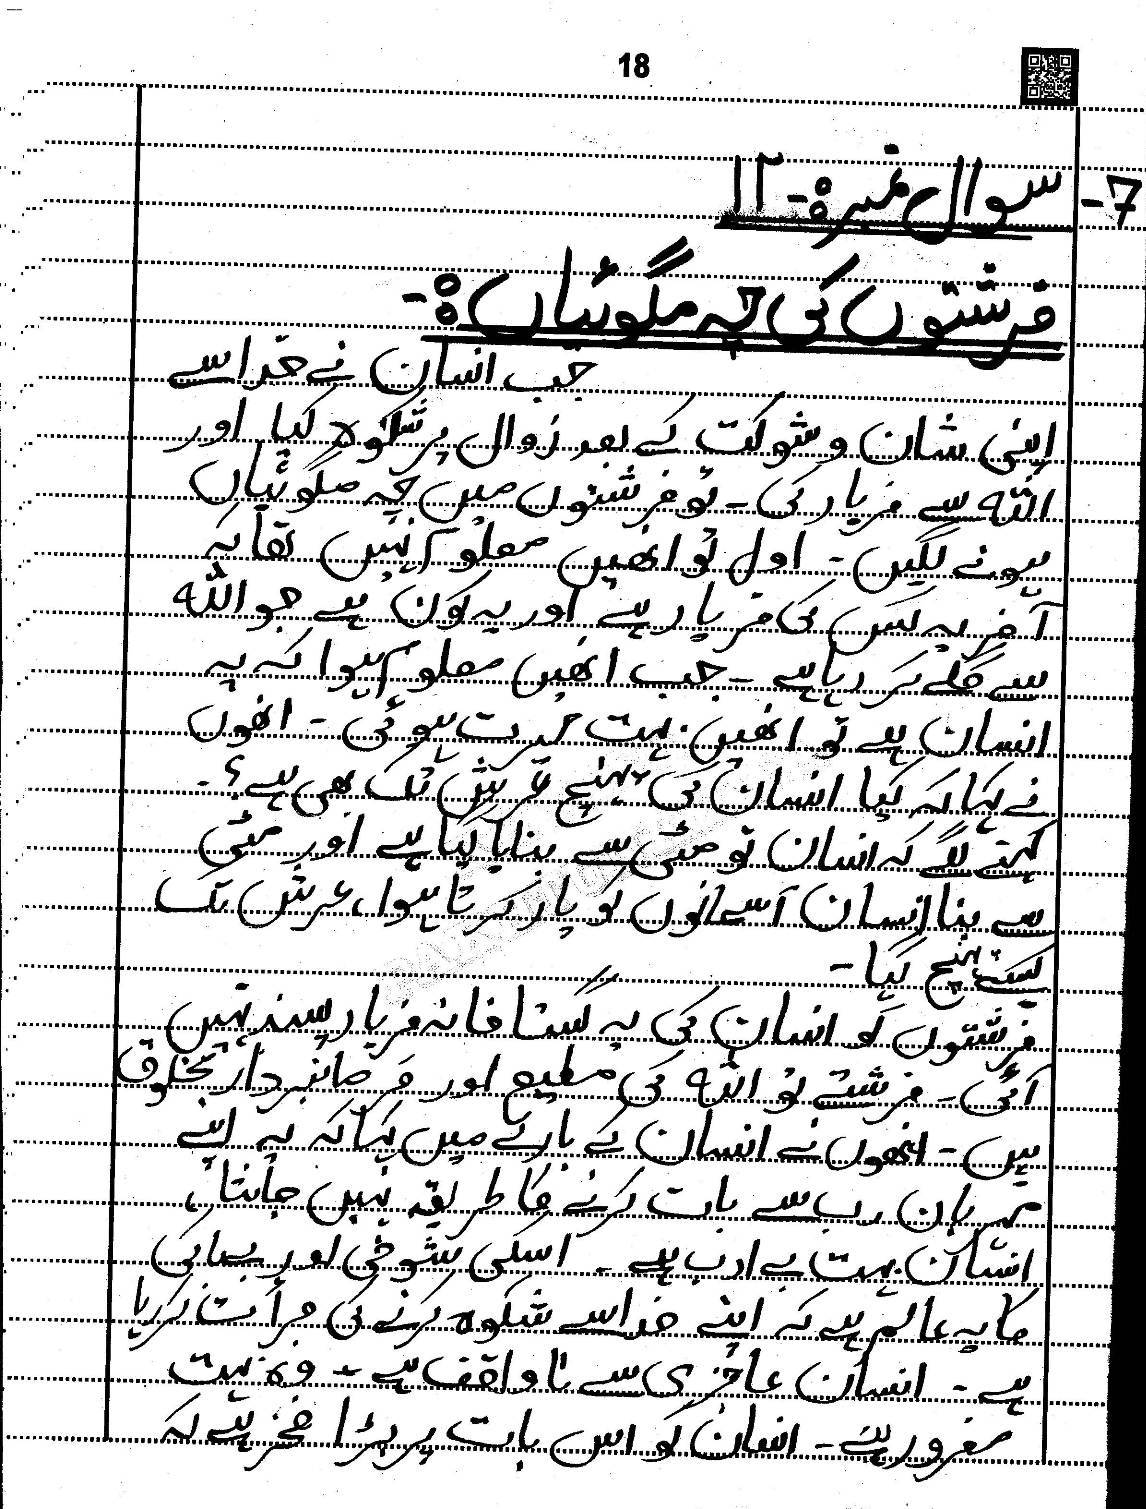 18
7- سوال نمبر ۱۲:-
فرشتوں کی چہ مگوئیاں:-
جب انسان نے خدا سے
اپنی شان و شوکت کے بعد زوال پر شکوہ کیا اور
اللہ سے فریاد کی۔ تو فرشتوں میں چہ مگوئیاں
ہونے لگیں۔ اول تو انھیں معلوم نہیں تھا کہ
آخر یہ کس کی فریاد ہے اور یہ کون ہے جو اللہ
سے گلے کر رہا ہے۔ جب انھیں معلوم ہوا کہ یہ
انسان ہے تو انھیں بہت حیرت ہوئی۔ انھوں
نے کہا کہ کیا انسان کی پہنچ عرش تک بھی ہے؟۔
کہنے لگے کہ انسان تو مٹی سے بنایا گیا ہے اور مٹی
سے بنا انسان آسمانوں کو پار کرتا ہوا، عرش تک
کیسے پہنچ گیا۔
فرشتوں کو انسان کی یہ گستاخانہ فریاد پسند نہیں
آئی۔ فرشتے تو اللہ کی مطیع اور فرمانبردار مخلوق
ہیں۔ انھوں نے انسان کے بارے میں کہا کہ یہ اپنے
مہربان رب سے بات کرنے کا طریقہ نہیں جانتا،
انسان بہت بے ادب ہے۔ اسکی شوخی اور بےباکی
کا یہ عالم ہے کہ اپنے خدا سے شکوہ کرنے کی جرأت کر رہا
ہے۔ انسان عاجزی سے ناواقف ہے۔ وہ بہت
مغرور ہے۔ انسان کو اس بات پر بڑا فخر ہے کہ